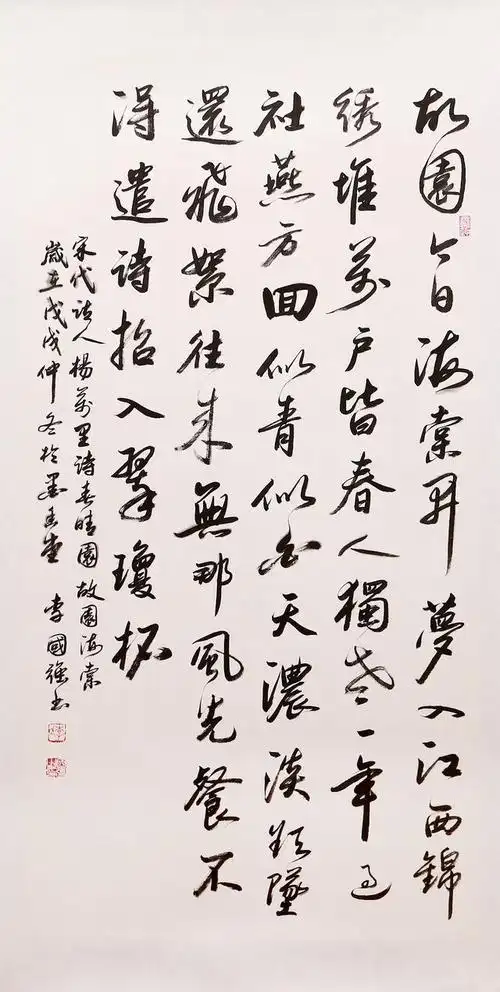 故園今日海棠开夢入江西錦
綉堆萬户皆春人獨老一年過
社燕方回似青似白天濃淡欲墜
還飛絮往来無那風光餐不
得遣詩招入翠瓊杯
宋代詩人楊萬里詩春晴園故園海棠
歲在戊戌仲冬於墨堂 李國强書